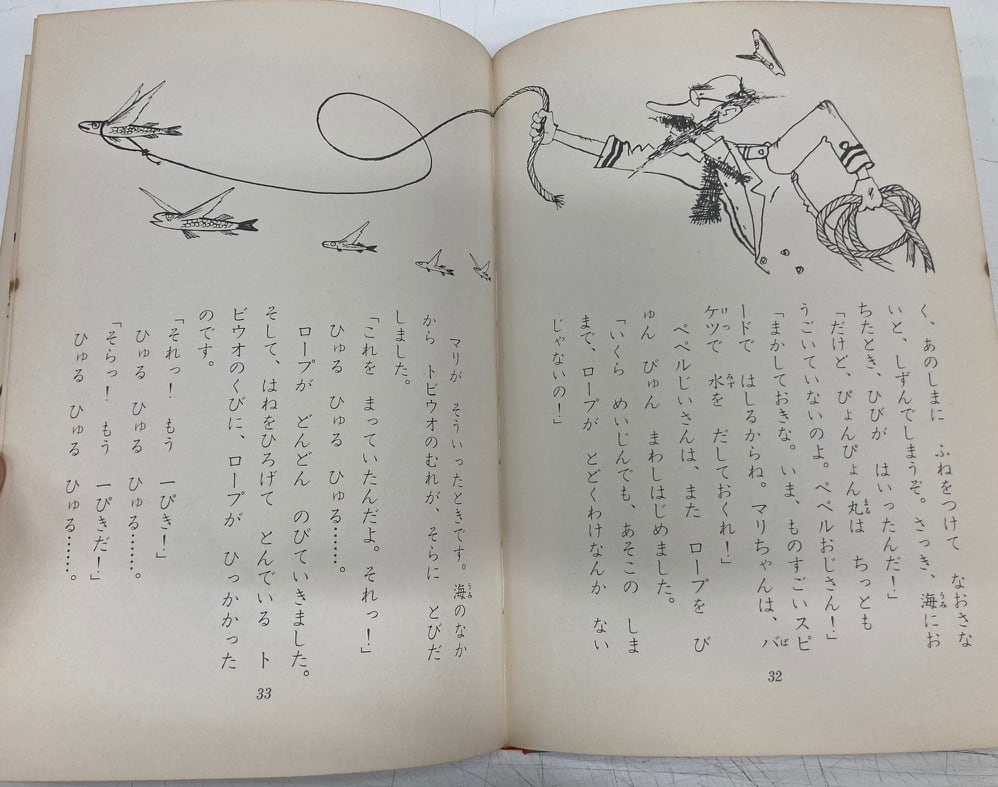 く、あのしまに　ふねをつけて　なおさな
いと、しずんでしまうぞ。さっき、海にお
ちたとき、ひびが　はいったんだ！」
「だけど、ぴょんぴょん丸は　ちっとも
うごいていないのよ。ペペルおじさん！」
「まかしておきな。いま、ものすごいスピ
ードで　はしるからね。マリちゃんは、バ
ケツで　水を　だしておくれ！」
ペペルじいさんは、また　ロープを　び
ゅん　びゅん　まわしはじめました。
「いくら　めいじんでも、あそこの　しま
まで、ロープが　とどくわけなんか　ない
じゃないの！」
32
マリが　そういったときです。海のなか
から　トビウオのむれが、そらに　とびだ
しました。
「これを　まっていたんだよ。それっ！」
ひゅる　ひゅる　ひゅる……。
ロープが　どんどん　のびていきました。
そして、はねをひろげて　とんでいる　ト
ビウオのくびに、ロープが　ひっかかった
のです。
「それっ！　もう　一ぴき！」
ひゅる　ひゅる　ひゅる……。
「そらっ！　もう　一ぴきだ！」
ひゅる　ひゅる　ひゅる……。
33